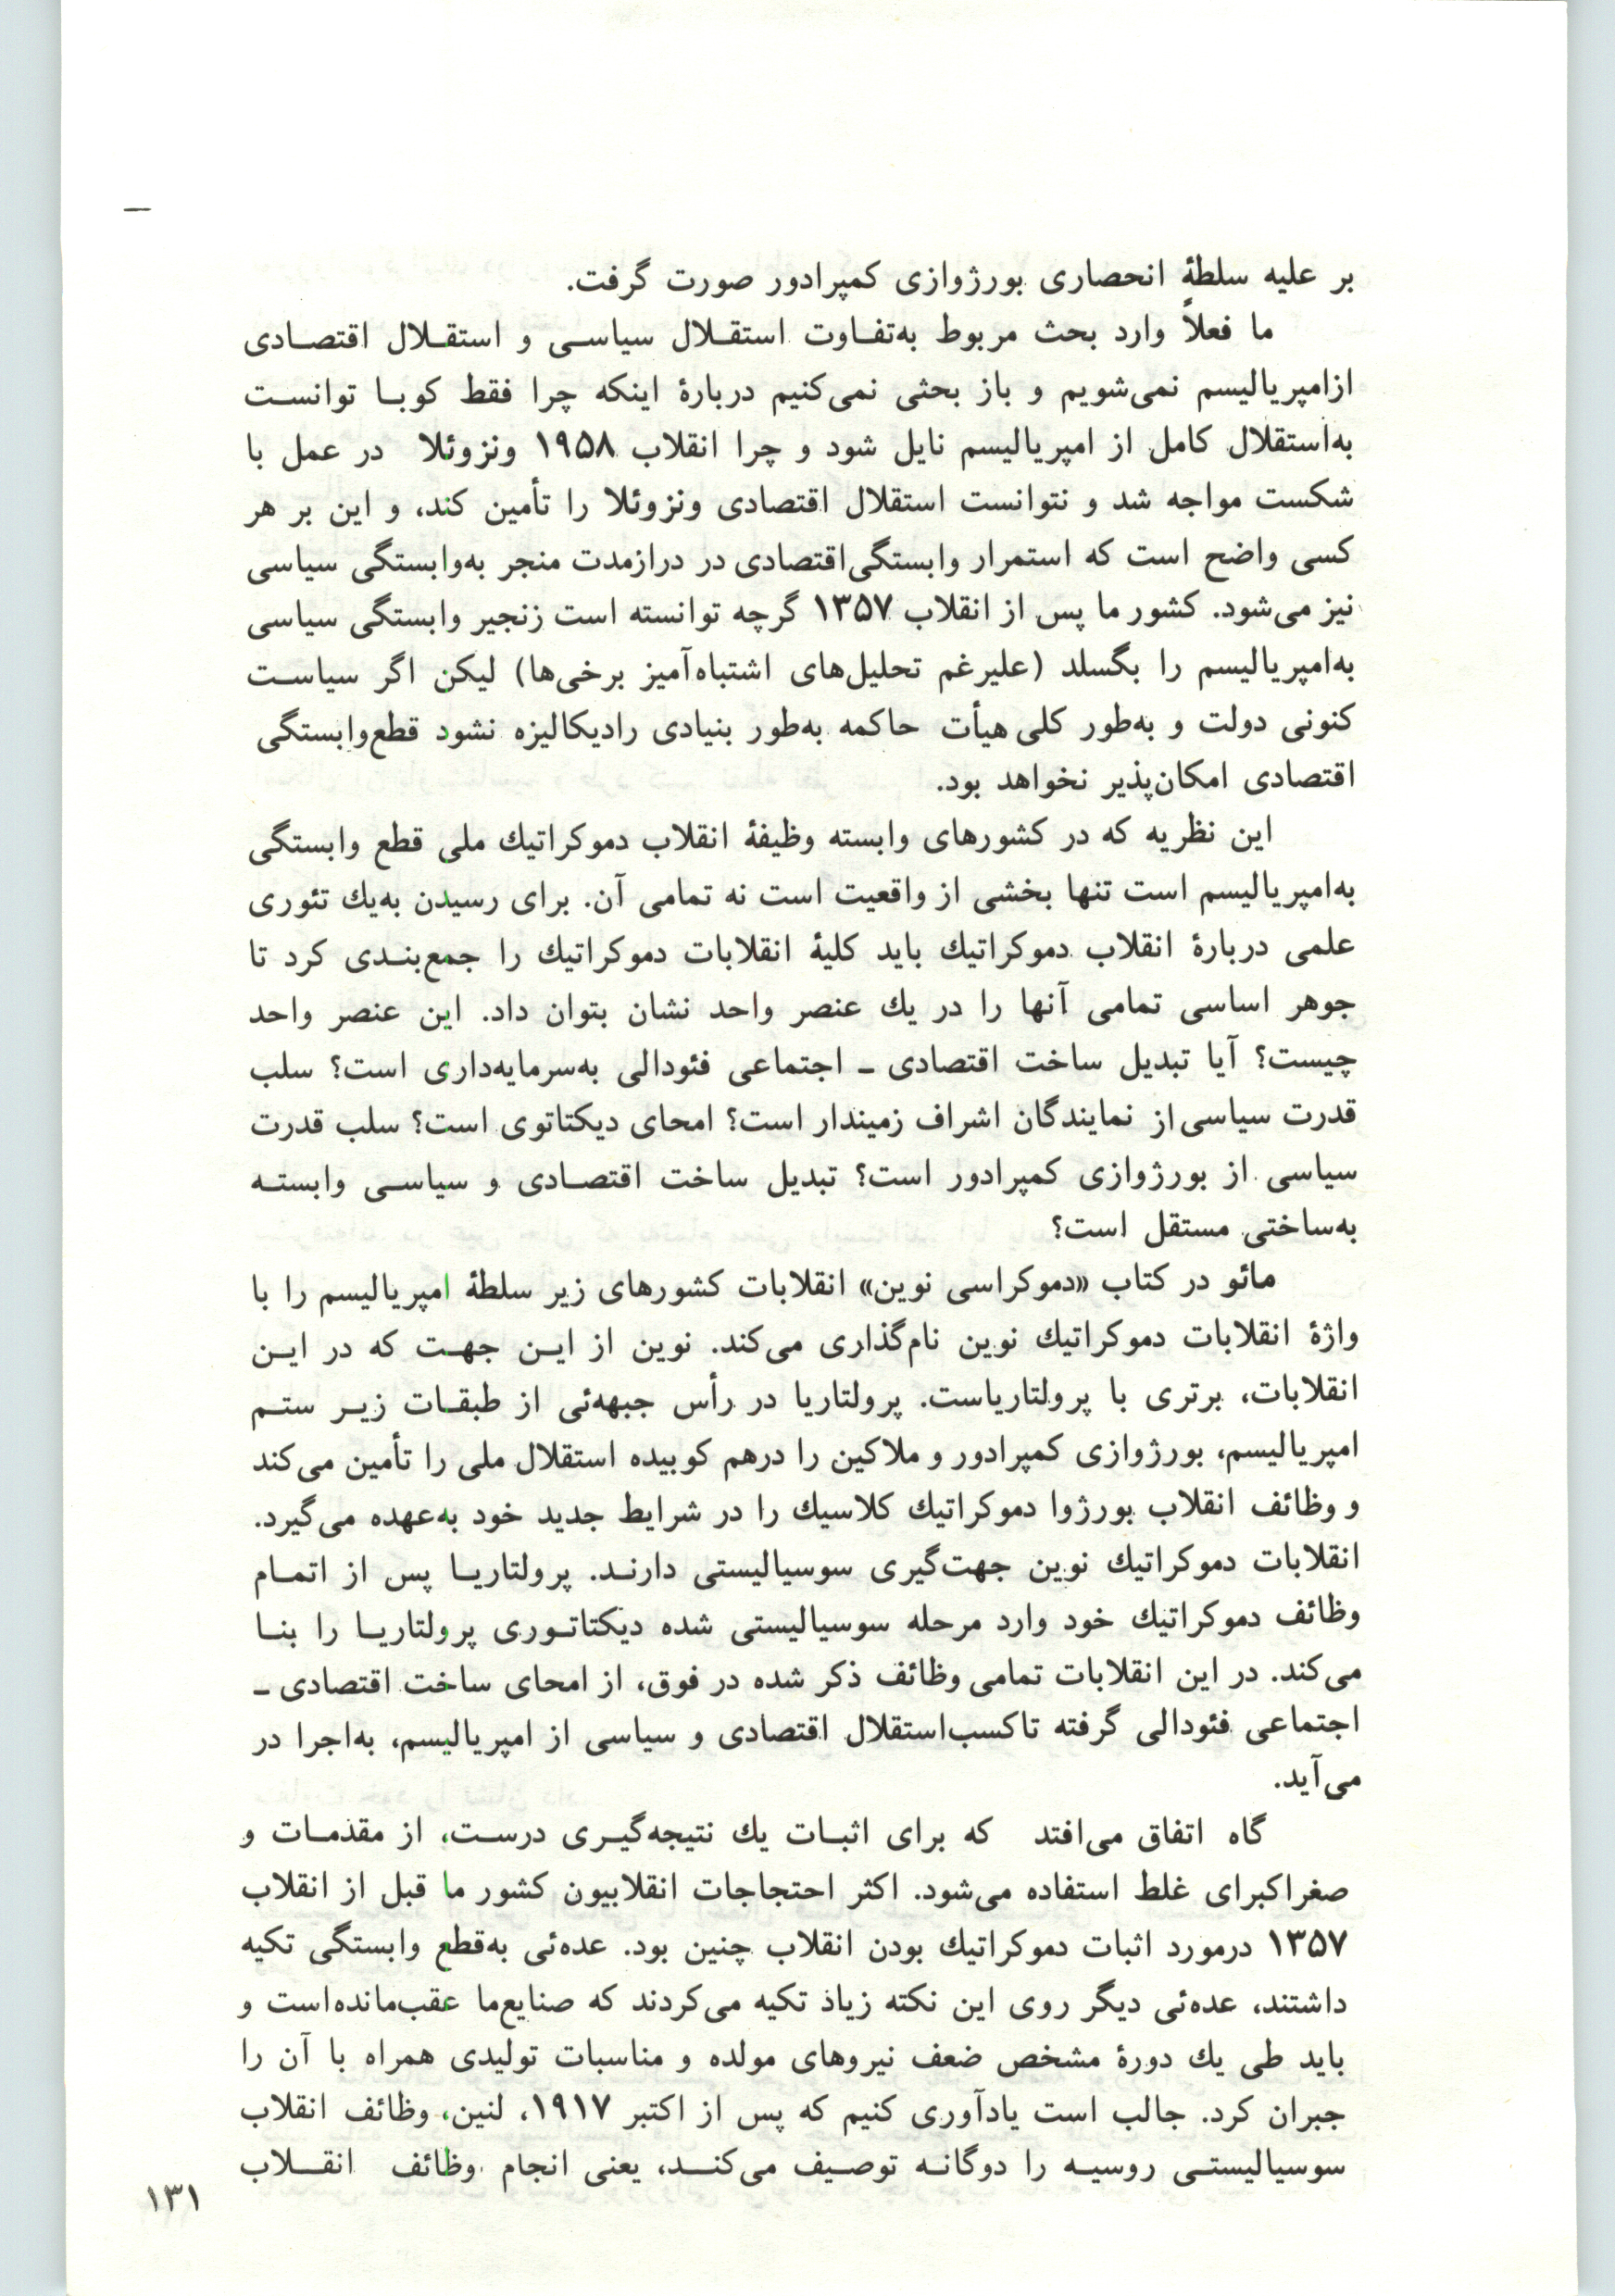 بر علیه سلطهٔ انحصاری بورژوازی کمپرادور صورت گرفت.
ما فعلاً وارد بحث مربوط به‌تفـاوت استقـلال سیاسـی و استقـلال اقتصـادی
ازامپریالیسم نمی‌شویم و باز بحثی نمی‌کنیم دربارهٔ اینکه چرا فقط کوبـا توانسـت
به‌استقلال کامل از امپریالیسم نایل شود و چرا انقلاب ۱۹۵۸ ونزوئلا در عمل با
شکست مواجه شد و نتوانست استقلال اقتصادی ونزوئلا را تأمین کند، و این بر هر
کسی واضح است که استمرار وابستگی‌اقتصادی در درازمدت منجر به‌وابستگی سیاسی
نیز می‌شود. کشور ما پس از انقلاب ۱۳۵۷ گرچه توانسته است زنجیر وابستگی سیاسی
به‌امپریالیسم را بگسلد (علیرغم تحلیل‌های اشتباه‌آمیز برخی‌ها) لیکن اگر سیاسـت
کنونی دولت و به‌طور کلی هیأت حاکمه به‌طور بنیادی رادیکالیزه نشود قطع‌وابستگی
اقتصادی امکان‌پذیر نخواهد بود.
این نظریه که در کشورهای وابسته وظیفهٔ انقلاب دموکراتیك ملی قطع وابستگی
به‌امپریالیسم است تنها بخشی از واقعیت است نه تمامی آن. برای رسیدن به‌یك تئوری
علمی دربارهٔ انقلاب دموکراتیك باید کلیهٔ انقلابات دموکراتیك را جمع‌بنـدی کرد تا
جوهر اساسی تمامی آنها را در یك عنصر واحد نشان بتوان داد. این عنصر واحد
چیست؟ آیا تبدیل ساخت اقتصادی ـ اجتماعی فئودالی به‌سرمایه‌داری است؟ سلب
قدرت سیاسی از نمایندگان اشراف زمیندار است؟ امحای دیکتاتوی است؟ سلب قدرت
سیاسی از بورژوازی کمپرادور است؟ تبدیل ساخت اقتصـادی و سیاسـی وابستـه
به‌ساختی مستقل است؟
مائو در کتاب «دموکراسی نوین» انقلابات کشورهای زیر سلطهٔ امپریالیسم را با
واژهٔ انقلابات دموکراتیك نوین نام‌گذاری می‌کند. نوین از ایـن جهـت که در ایـن
انقلابات، برتری با پرولتاریاست. پرولتاریا در رأس جبهه‌ئی از طبقـات زیـر ستـم
امپریالیسم، بورژوازی کمپرادور و ملاکین را درهم کوبیده استقلال ملی را تأمین می‌کند
و وظائف انقلاب بورژوا دموکراتیك کلاسیك را در شرایط جدید خود به‌عهده می‌گیرد.
انقلابات دموکراتیك نوین جهت‌گیری سوسیالیستی دارنـد. پرولتاریـا پس از اتمـام
وظائف دموکراتیك خود وارد مرحله سوسیالیستی شده دیکتاتـوری پرولتاریـا را بنـا
می‌کند. در این انقلابات تمامی وظائف ذکر شده در فوق، از امحای ساخت اقتصادی ـ
اجتماعی فئودالی گرفته تاکسب‌استقلال اقتصادی و سیاسی از امپریالیسم، به‌اجرا در
می‌آید.
گاه اتفاق می‌افتد که برای اثبـات یك نتیجه‌گیـری درسـت، از مقدمـات و
صغراکبرای غلط استفاده می‌شود. اکثر احتجاجات انقلابیون کشور ما قبل از انقلاب
۱۳۵۷ درمورد اثبات دموکراتیك بودن انقلاب چنین بود. عده‌ئی به‌قطع وابستگی تکیه
داشتند، عده‌ئی دیگر روی این نکته زیاد تکیه می‌کردند که صنایع‌ما عقب‌مانده‌است و
باید طی یك دورهٔ مشخص ضعف نیروهای مولده و مناسبات تولیدی همراه با آن را
جبران کرد. جالب است یادآوری کنیم که پس از اکتبر ۱۹۱۷، لنین، وظائف انقلاب
سوسیالیستـی روسیـه را دوگانـه توصـیف می‌کنــد، یعنی انجام وظائف انقــلاب
۱۳۱